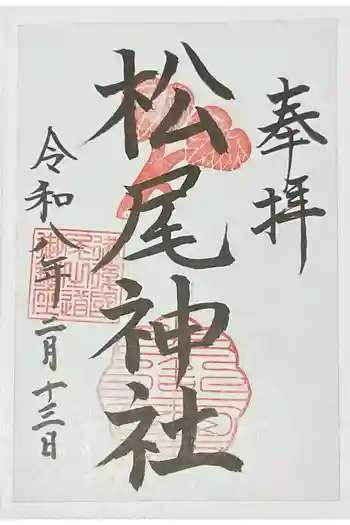 奉拝
松尾神社
令和八年二月十三日